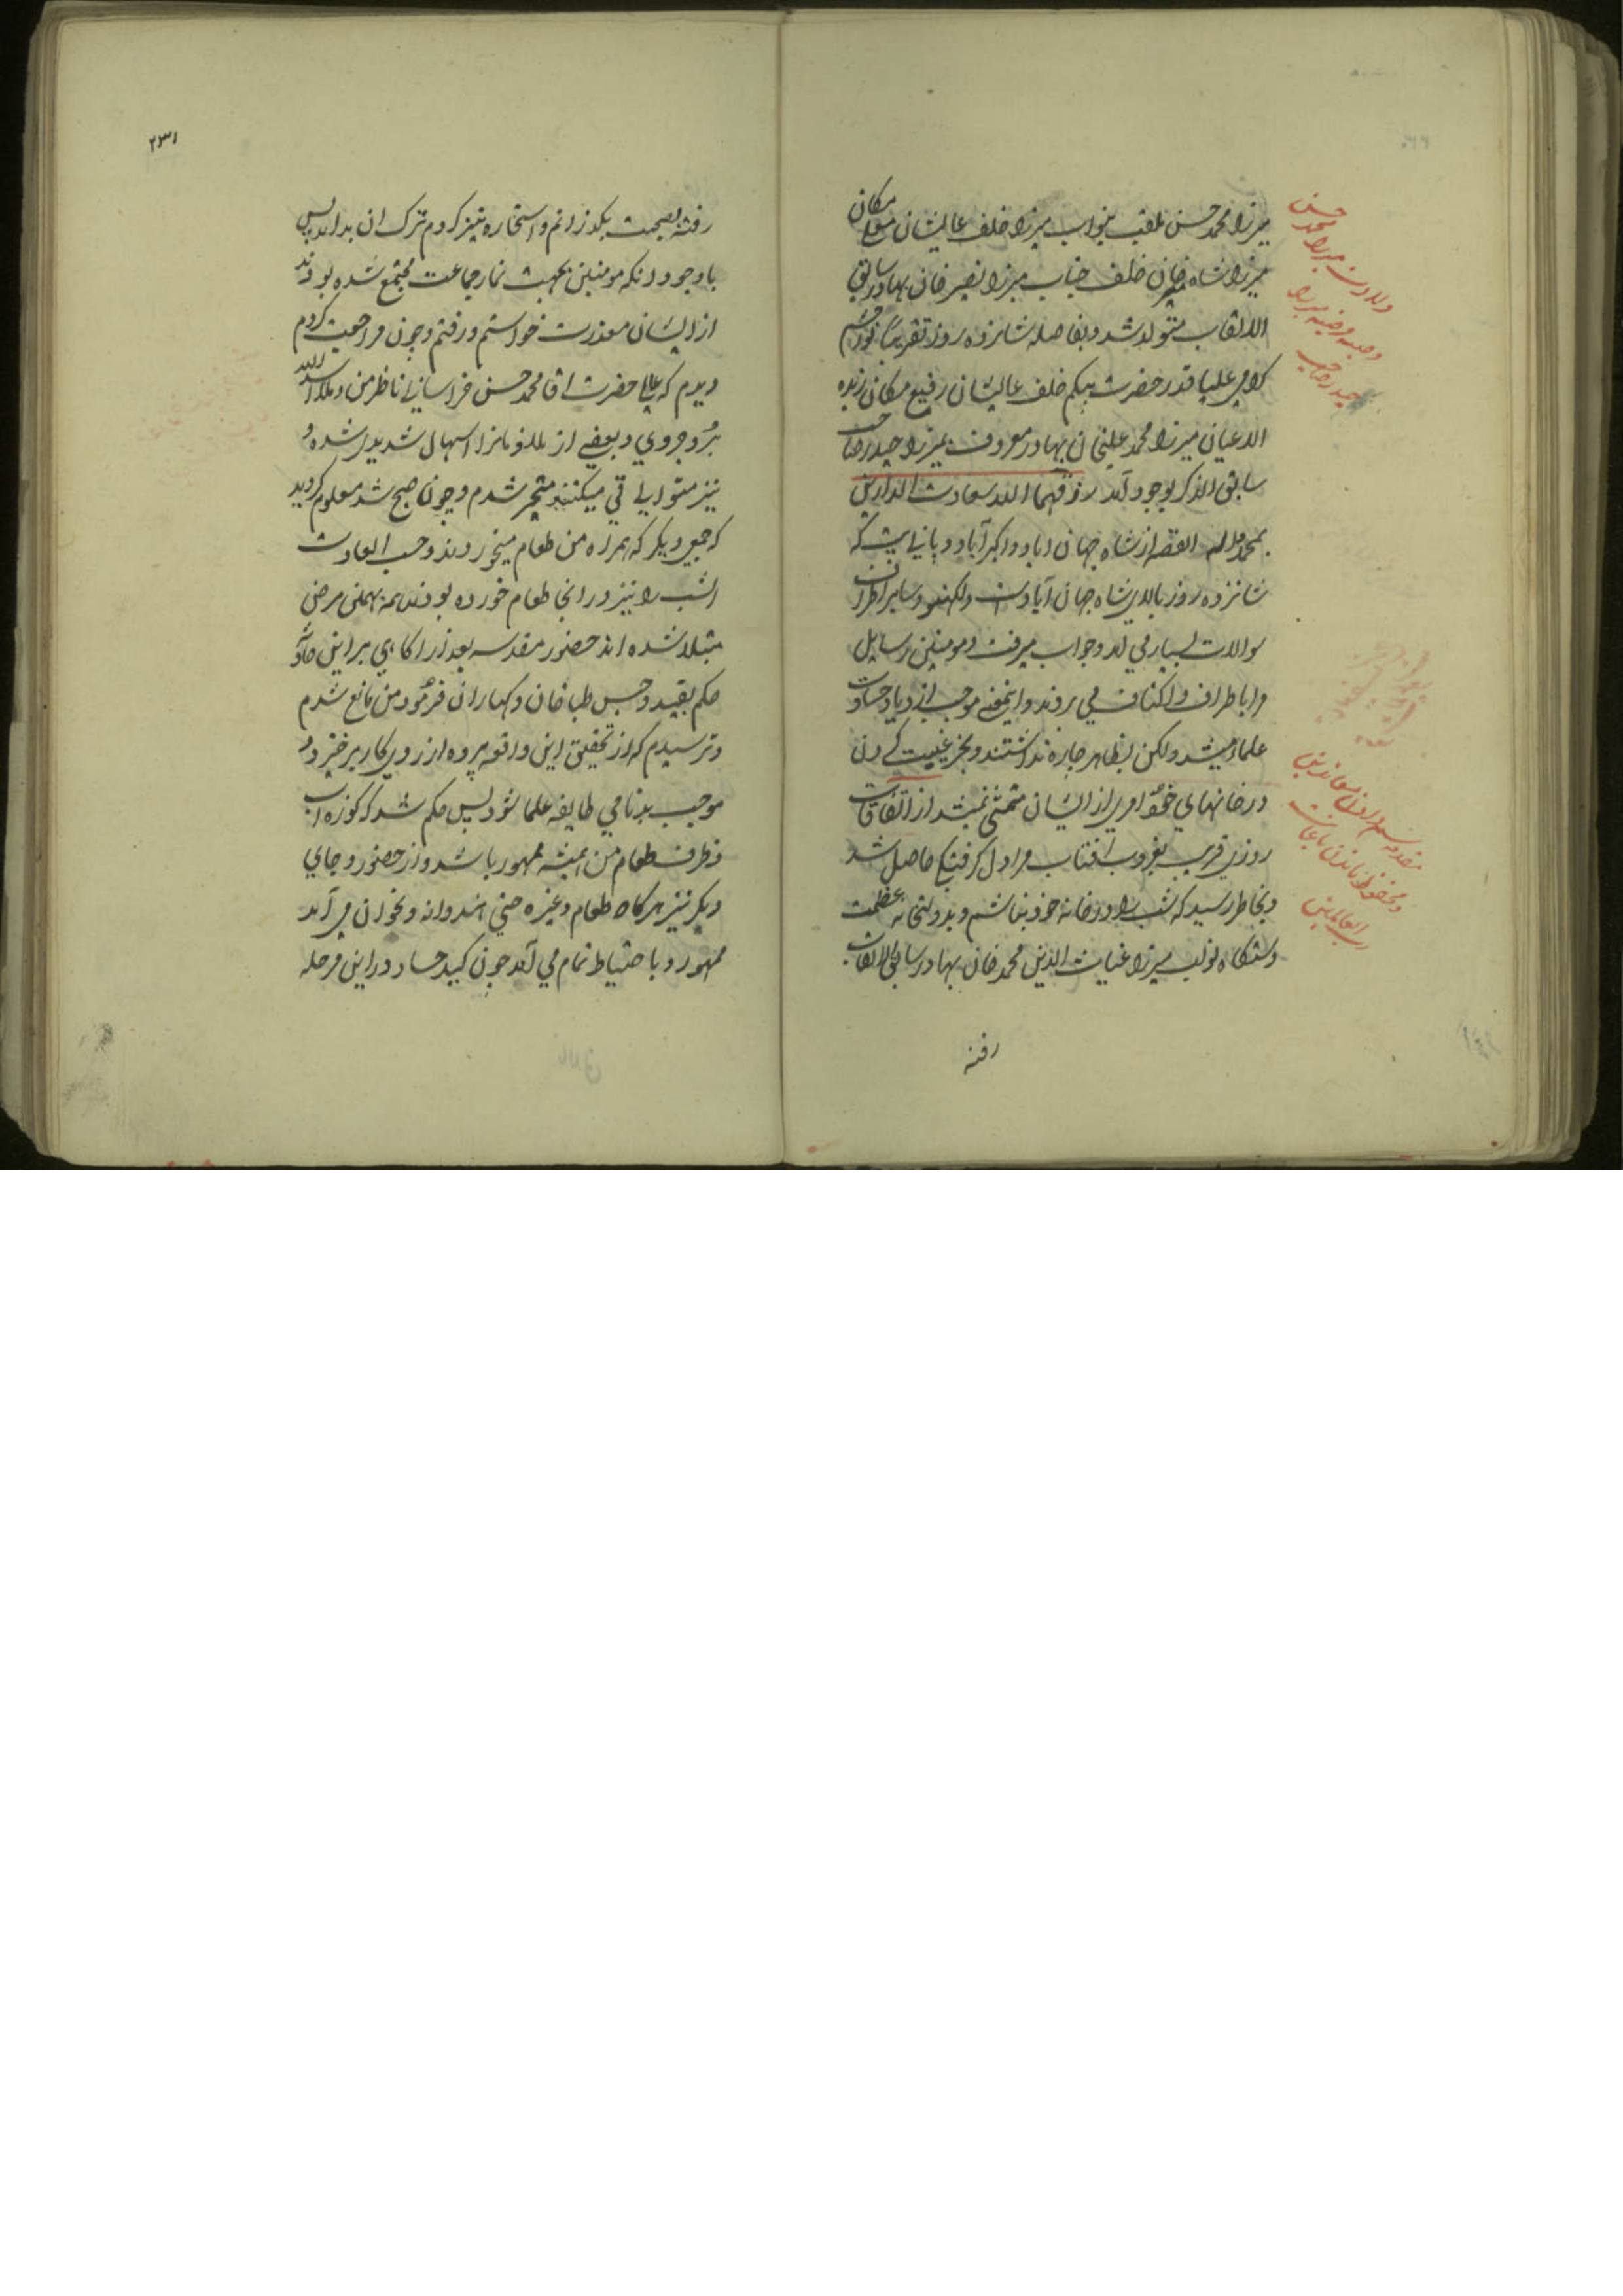 میرزا محمد حسن ملقب بنواب میرزا خلف عالیشان معلی مکان
میرزا شاه میر خان خلف جناب میرزا نصیر خان بهادر سابق
الالقاب متولد شد و بفاصله شانزده روز تقریبا نور چشم
کرامی علیا قدر حضرت بیکم خلف عالیشان رفیع مکان زبده
الاعیان میرزا محمد علیخان بهادر معروف بمیرزا حیدر صاحب
سابق الذکر بوجود آمد رزقهما الله سعادت الدارین
بمحمد و اله القصه از شاه جهان اباد و اکبرآباد و پانی پت که
شانزده روز بالای شاه جهان آبادست و لکهنو و سایر اطراف
سوالات بسیار می امد و جواب میرفت و مومنین رسایل
مرا باطراف و اکناف می بردند و اینمعنی موجب ازدیاد حسادت
علماء میشد ولکن بظاهر چاره نداشتند و بجز غیبت کردن
در خانهای خود امری از ایشان متمشی نمیشد از اتفاقات
روزی قریب بغروب آفتاب مرا دل کرفتکی حاصل شد
و بخاطر رسید که شب را در خانه خود نباشم و بدولتخانه عظمت
دستکاه نواب میرزا غیاث الدین محمد خان بهادر سابق الالقاب
رفته
ولادت میرزا محمد حسن
حیدر صاحب
و محفوظ ماندن
رب العالمین
۲۳۱
رفته بصحبت بکذرانم و استخاره نیز کردم ترک ان بد امد پس
باوجود انکه مومنین بجهت نماز جماعت مجتمع شده بودند
از ایشان معذرت خواستم و رفتم و چون مراجعت کردم
دیدم که عالی حضرت اقا محمد حسن خراسانی ناظر من و ملا اسد الله
بروجردی و بعضی از ملازمان را اسهال شدید شده و
نیز متوالی قی میکنند متحیر شدم و چون صبح شد معلوم کردید
که جمعی دیکر که همراه من طعام میخوردند و حسب العادت
انشب را نیز در انجا طعام خورده بودند همه بهمین مرض
مبتلا شده اند حضور مقدسه بعد از اکاهی بر این حادثه
حکم بقید و حبس طباخان و کهاران فرمود من مانع شدم
و ترسیدم که از تحقیق این واقعه پرده از روی کار برخیزد و
موجب بدنامی طایفه علما شود پس حکم شد که کوزه اب
و ظرف طعام من همیشه ممهور باشد و از حضور و جای
دیکر نیز هرکاه طعام و غیره حتی هندوانه و نخوان می آمد
ممهور و با حتیاط تمام می آمد چون کید حساد در این مرحله